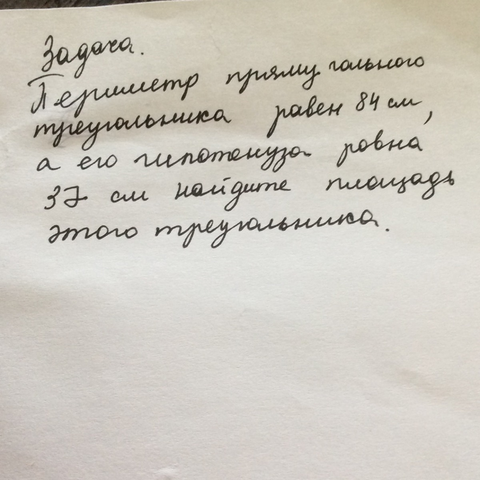 Задача.
Периметр прямугольного
треугольника равен 84 см,
а его гипотенуза ровна
37 см найдите площадь
этого треугольника.